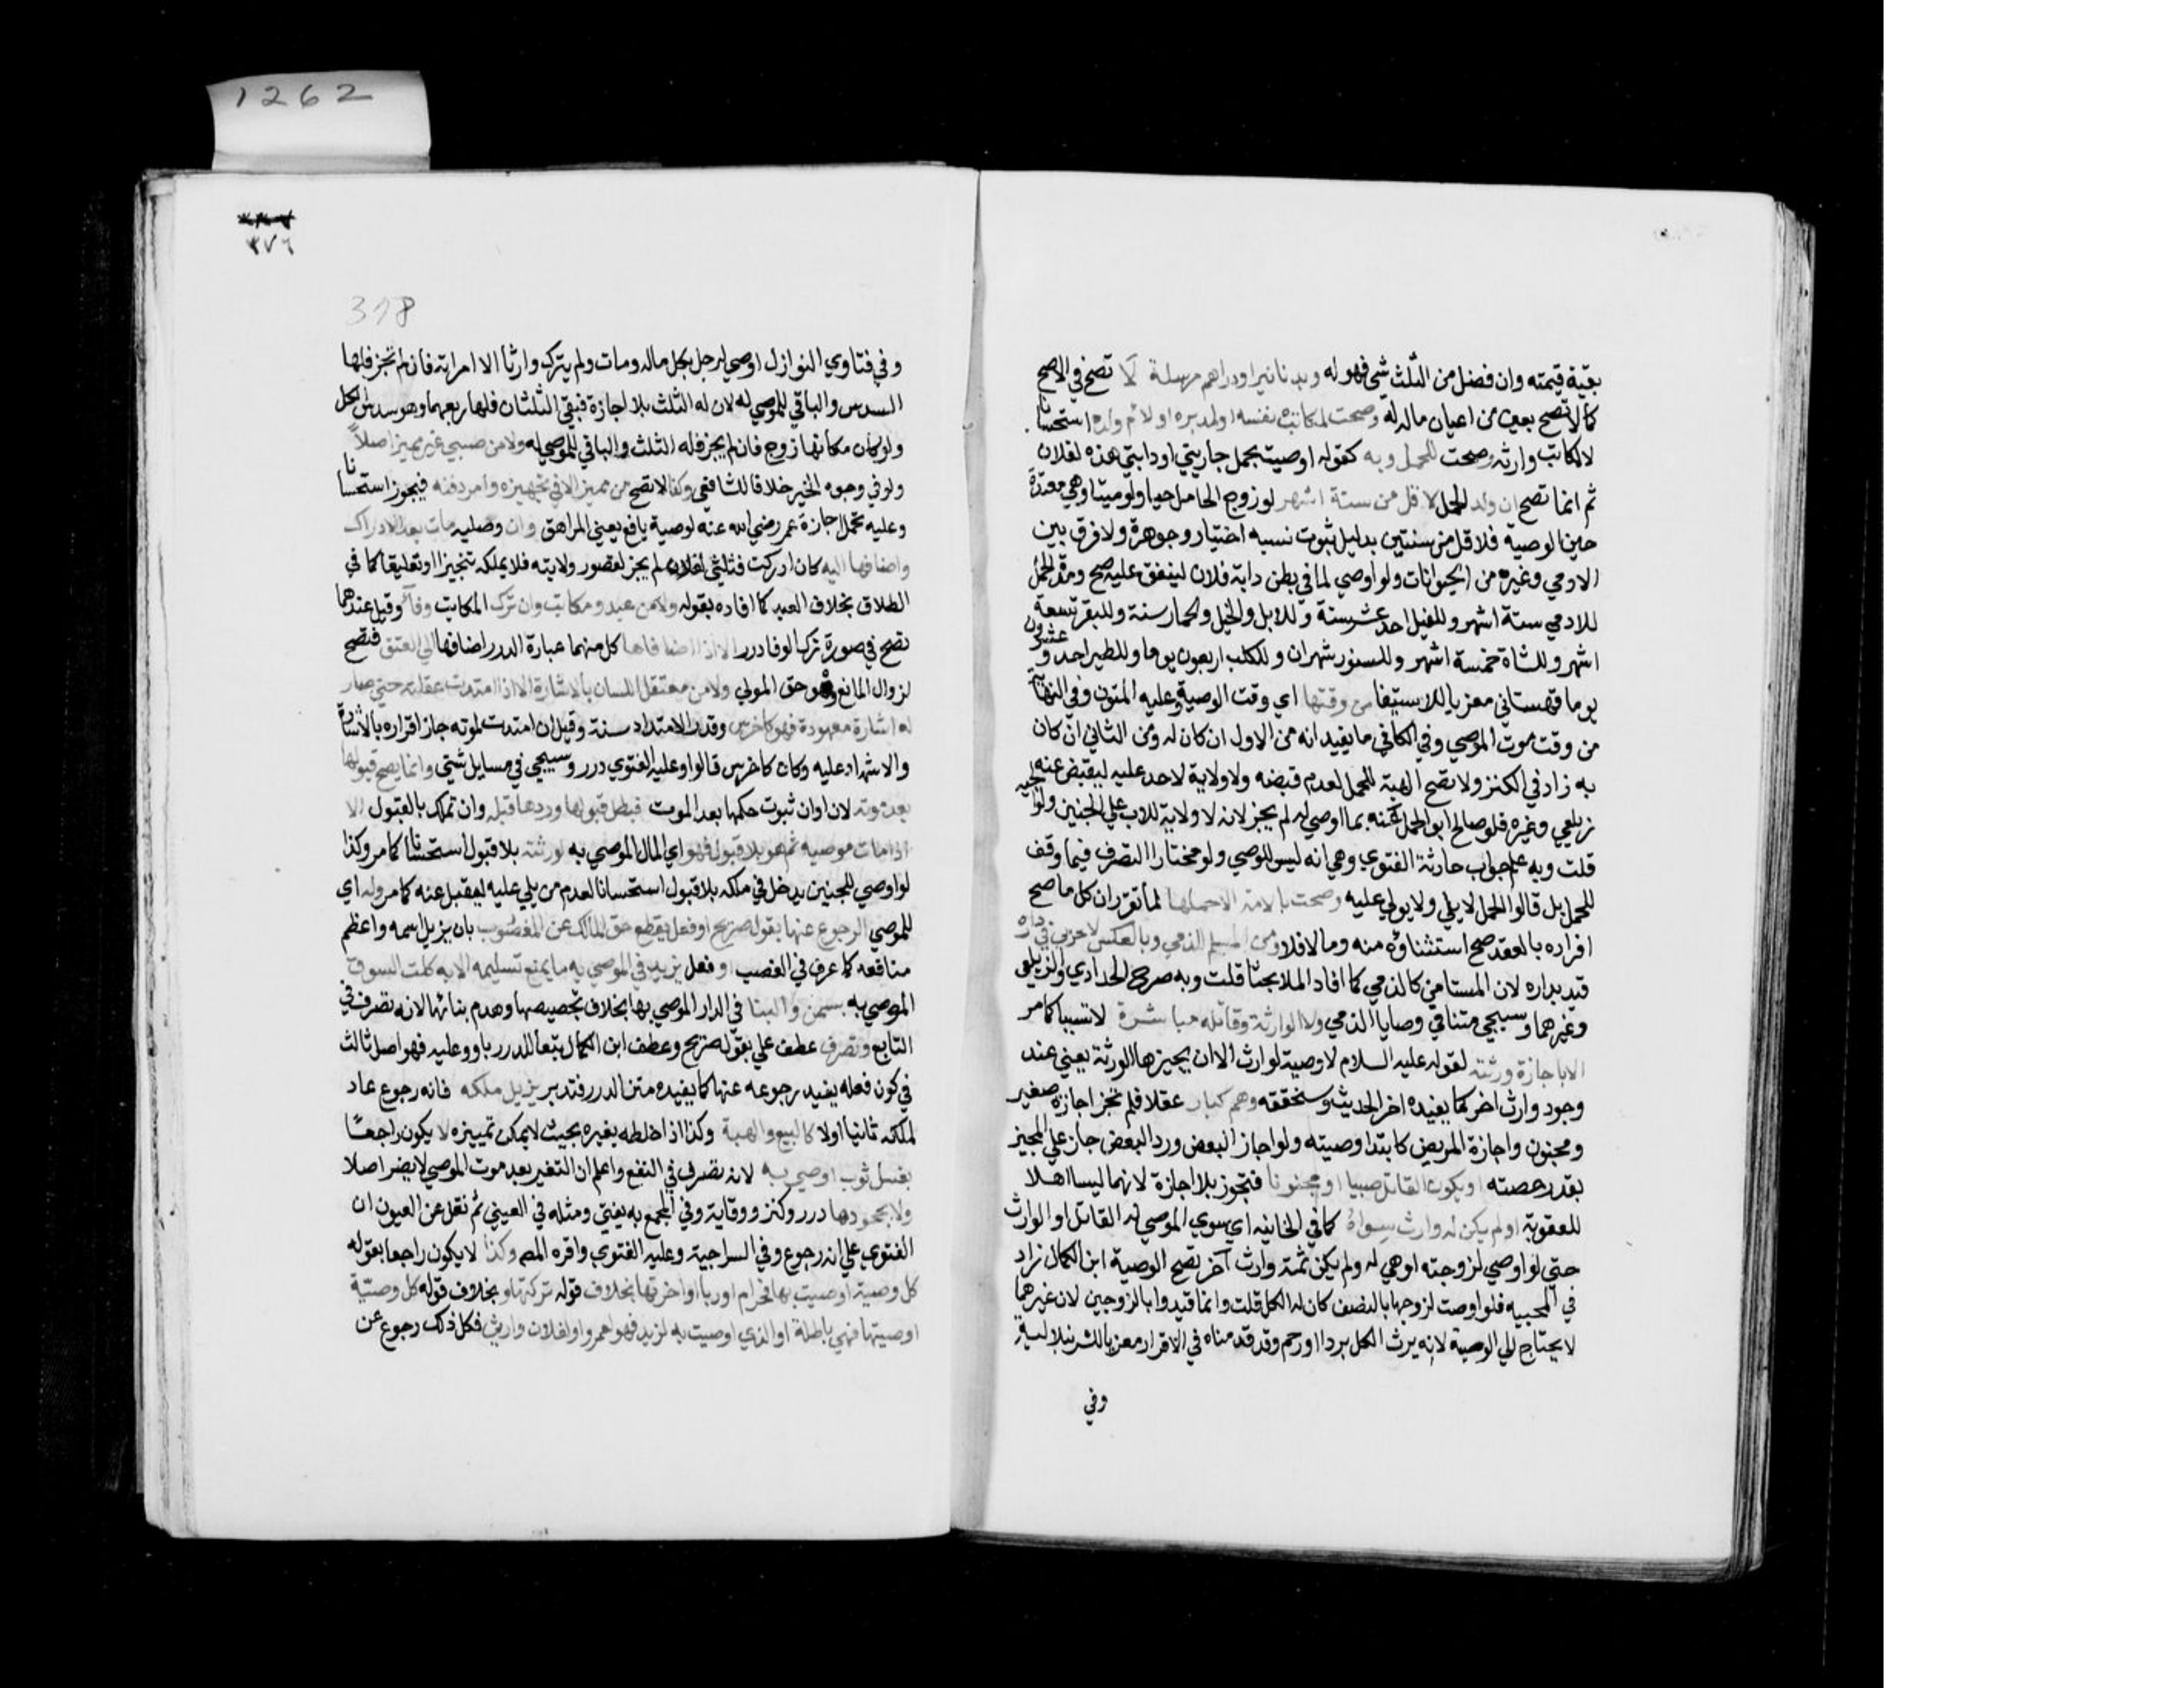 بقية قيمته وان فضل من الثلث شي فهو له وبدنانير او دراهم مرسلة لا تصح في الاصح
كما لا تصح بعين من اعيان ماله له وصحت لمكاتب نفسه او لمدبره او لام ولده استحسانا
لا لمكاتب وارثه وصحت للحمل وبه كقوله اوصيت بحمل جاريتي او دابتي هذه لفلان
ثم انما تصح ان ولد الحمل لاقل من ستة اشهر لو زوج الحامل حيا ولو ميتا وهي معتدة
حين الوصية فلاقل من سنتين بدليل ثبوت نسبه اختيار وجوهرة ولا فرق بين
الادمي وغيره من الحيوانات ولو اوصي لما في بطن دابة فلان لينفق عليه صح ومدة الحمل
للادمي ستة اشهر وللفيل احد عشر سنة وللابل والخيل والحمار سنة وللبقر تسعة
اشهر وللشاة خمسة اشهر وللسنور شهران وللكلب اربعون يوما وللطير احد وعشرون
يوما قهستاني معزيا للاستيفا من وقتها اي وقت الوصية وعليه المتون وفي النهاية
من وقت موت الموصي وفي الكافي ما يفيد انه من الاول ان كان له ومن الثاني ان كان
به زاد في الكنز ولا تصح الهبة للحمل لعدم قبضه ولا ولاية لاحد عليه ليقبض عنه
زيلعي وغيره فلو صالح ابو الحمل عنه بما اوصي له لم يجز لانه لا ولاية للاب علي الجنين ولوالجيه
قلت وبه علم جواب حادثة الفتوي وهي انه ليس للوصي ولو مختارا التصرف فيما وقف
للحمل بل قالوا الحمل لا يلي ولا يولي عليه وصحت بالامة الا حملها لما تقرر ان كل ما صح
افراده بالعقد صح استثناؤه منه وما لا فلا ومن المسلم للذمي وبالعكس لا حربي في داره
قيد بداره لان المستامن كالذمي كما افاد الملا بحثا قلت وبه صرح الحدادي والزيلعي
وغيرهما وسيجي متنا في وصايا الذمي ولا الوارثة وقاتله مباشرة لا تسببا كما مر
الا باجازة ورثته لقوله عليه السلام لا وصية لوارث الا ان يجيزها الورثة يعني عند
وجود وارث اخر كما يفيده اخر الحديث وسنحققه وهم كبار عقلا فلم تجز اجازة صغير
ومجنون واجازة المريض كابتدا وصيته ولو اجاز البعض ورد البعض جاز علي المجيز
بقدر حصته او يكون القاتل صبيا او مجنونا فتجوز بلا اجازة لانهما ليسا اهلا
للعقوبة او لم يكن له وارث سواه كما في الخانيه اي سوي الموصي له القاتل او الوارث
حتي لو اوصي لزوجته او هي له ولم يكن ثمة وارث آخر تصح الوصية ابن الكمال زاد
في المحبيه فلو اوصت لزوجها بالنصف كان له الكل قلت وانما قيدوا بالزوجين لان غيرهما
لا يحتاج الي الوصية لانه يرث الكل برد او رحم وقد قدمناه في الاقرار معزيا للشرنبلالية
وفي
١٢٦٢
٣٧٦
318
وفي فتاوي النوازل اوصي لرجل بكل ماله ومات ولم يترك وارثا الا امراته فان لم تجز فلها
السدس والباقي للموصي له لان له الثلث بلا اجازة فبقي الثلثان فلها ربعهما وهو سدس الكل
ولو كان مكانها زوج فان لم يجز فله الثلث والباقي للموصي له ولا من صبي غير مميز اصلا
ولو في وجوه الخير خلافا للشافعي وكذا لا تصح من مميز الا في تجهيزه وامر دفنه فيجوز استحسانا
وعليه تحمل اجازة عمر رضي الله عنه لوصية يافع يعني المراهق وان وصليه مات بعد الادراك
واضافها اليه كان ادركت فثلثي لفلان لم يجز لقصور ولايته فلا يملكه تنجيزا وتعليقا كما في
الطلاق بخلاف العبد كما افاده بقوله ولا من عبد ومكاتب وان ترك المكاتب وفآ وقيل عندهما
تصح في صورة ترك الوفا درر الا اذا اضافاها كل منهما عبارة الدرر اضافها الي العتق فتصح
لزوال المانع وهو حق المولي ولا من معتقل اللسان بالاشارة الا اذا امتدت عقلته حتي صار
له اشارة معهودة فهو كاخرس وقدر الامتداد سنة وقيل ان امتدت لموته جاز اقراره بالاشارة
والاشهاد عليه وكان كاخرس قالوا وعليه الفتوي درر وسيجي في مسايل شتي وانما يصح قبولها
بعد موته لان اوان ثبوت حكمها بعد الموت فبطل قبولها وردها قبله وان تملك بالقبول الا
اذا مات موصيه ثم هو بلا قبول فهو اي المال الموصي به لورثته بلا قبول استحسانا كما مر وكذا
لو اوصي للجنين يدخل في ملكه بلا قبول استحسانا لعدم من يلي عليه ليقبل عنه كما مر وله اي
للموصي الرجوع عنها بقول صريح او فعل يقطع حق المالك عن المغصوب بان يزيل اسمه واعظم
منافعه كما عرف في الغصب او فعل يزيد في الموصي به ما يمنع تسليمه الا به كلت السوق
الموصي به بسمن والبنا في الدار الموصي بها بخلاف تجصيصها وهدم بنائها لانه تصرف في
التابع وتصرف عطف علي بقول صريح وعطف ابن الكمال تبعا للدرر باو وعليه فهو اصل ثالث
في كون فعله يفيد رجوعه عنها كما يفيده متن الدرر فتدبر يزيل ملكه فانه رجوع عاد
لملكه ثانيا او لا كالبيع والهبة وكذا اذا خلطه بغيره بحيث لا يمكن تمييزه لا يكون راجعا
بغسل ثوب اوصي به لانه تصرف في النفع واعلم ان التغير بعد موت الموصي لا يضر اصلا
ولا بجحودها درر وكنز ووقاية وفي المجمع به يفتي ومثله في العيني ثم نقل عن العيون ان
الفتوي علي انه رجوع وفي السراجية وعليه الفتوي واقره المصـ وكذا لا يكون راجعا بقوله
كل وصية اوصيت بها فحرام او ربا او اخرتها بخلاف قوله تركتها وبخلاف قوله كل وصية
اوصيتها فهي باطلة او الذي اوصيت به لزيد فهو لعمرو او لفلان وارثي فكل ذلك رجوع عن